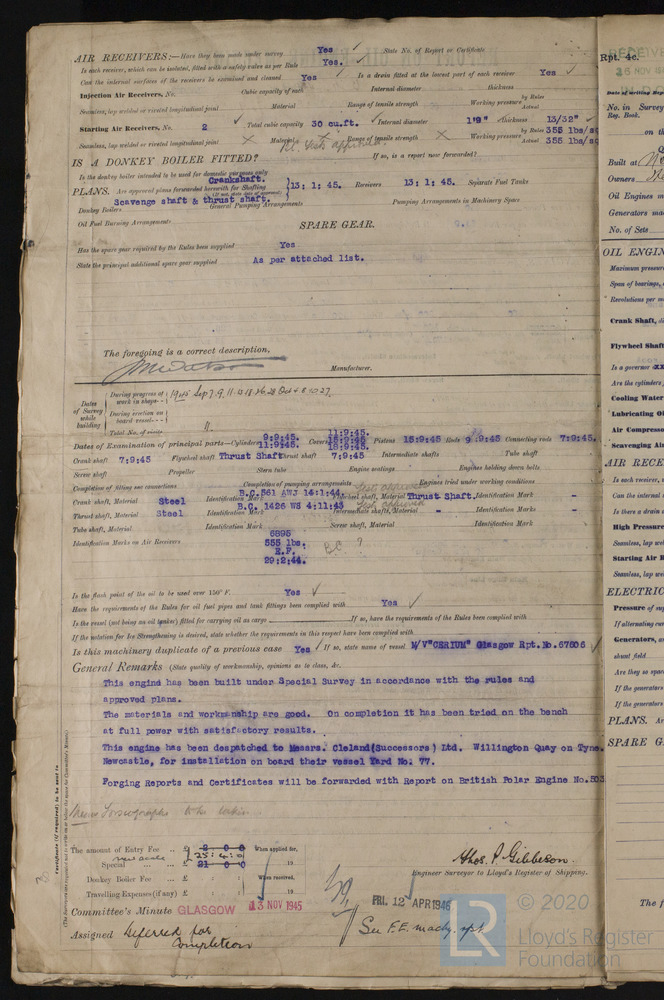 AIR RECEIVERS:—Have they been made under survey Yes ✓ State No. of Report or Certificate
Is each receiver, which can be isolated, fitted with a safety valve as per Rule Yes. ✓
Can the internal surfaces of the receivers be examined and cleaned Yes Is a drain fitted at the lowest part of each receiver Yes ✓
Injection Air Receivers, No. Cubic capacity of each Internal diameter thickness
Seamless, lap welded or riveted longitudinal joint Material Range of tensile strength Working pressure by Rules Actual
Starting Air Receivers, No. 2 ✓ Total cubic capacity 30 cu.ft. ✓ Internal diameter 1'9" ✓ thickness 13/32" ✓
Seamless, lap welded or riveted longitudinal joint Material Range of tensile strength Working pressure by Rules 355 lbs/sq Actual 355 lbs/sq
IS A DONKEY BOILER FITTED? If so, is a report now forwarded?
Is the donkey boiler intended to be used for domestic purposes only
PLANS. Are approved plans forwarded herewith for Shafting Crankshaft. 13: 1: 45. Receivers 13: 1: 45. Separate Fuel Tanks
(If not, state date of approval)
Scavenge shaft & thrust shaft.
Donkey Boilers General Pumping Arrangements Pumping Arrangements in Machinery Space
Oil Fuel Burning Arrangements
SPARE GEAR.
Has the spare gear required by the Rules been supplied Yes
State the principal additional spare gear supplied As per attached list.
The foregoing is a correct description,
Manufacturer.
Dates of Survey while building
During progress of work in shops - -
During erection on board vessel - - -
Total No. of visits
Dates of Examination of principal parts—Cylinders 9:9:45. 11:9:45. Covers 11:9:45. Pistons 15:9:45 Rods 9:9:45 Connecting rods 7:9:45.
Crank shaft 7:9:45 Flywheel shaft Thrust Shaft Thrust shaft 7:9:45 Intermediate shafts Tube shaft
Screw shaft Propeller Stern tube Engine seatings Engines holding down bolts
Completion of fitting sea connections Completion of pumping arrangements Engines tried under working conditions
Crank shaft, Material Steel Identification Mark B.C.561 AWJ 14:1:44. Flywheel shaft, Material Thrust Shaft. Identification Mark -
Thrust shaft, Material Steel Identification Mark B.C. 1426 WS 4:11:43 Intermediate shafts, Material - Identification Marks -
Tube shaft, Material Identification Mark Screw shaft, Material Identification Mark
Identification Marks on Air Receivers 6895
555 lbs.
E.F.
29:2:44.
Is the flash point of the oil to be used over 150° F. Yes ✓
Have the requirements of the Rules for oil fuel pipes and tank fittings been complied with Yes ✓
Is the vessel (not being an oil tanker) fitted for carrying oil as cargo If so, have the requirements of the Rules been complied with
If the notation for Ice Strengthening is desired, state whether the requirements in this respect have been complied with
Is this machinery duplicate of a previous case Yes ✓ If so, state name of vessel M/V"CERIUM" Glasgow Rpt.No.67606 ✓
General Remarks (State quality of workmanship, opinions as to class, &c.
This engine has been built under Special Survey in accordance with the rules and
approved plans.
The materials and workmanship are good. On completion it has been tried on the bench
at full power with satisfactory results.
This engine has been despatched to Messrs. Cleland(Successors) Ltd. Willington Quay on Tyne.
Newcastle, for installation on board their vessel Yard No. 77.
Forging Reports and Certificates will be forwarded with Report on British Polar Engine No.503
The amount of Entry Fee .. £ 2 0 0 When applied for,
Special ... ... £ 21 0 0 25:4:0 19
Donkey Boiler Fee ... £ When received,
Travelling Expenses (if any) £ 19
Thos. P. Gibbeson.
Engineer Surveyor to Lloyd's Register of Shipping.
Committee's Minute GLASGOW 13 NOV 1945
FRI. 12 APR 1946
Assigned Deferred for Completion
See F.E. machy. rpt.
© 2020
LR
Lloyd's Register
Foundation
Rpt. 4c.
No. in Survey
Reg. Book.
on th
Built at
Owners
Oil Engines m
Generators ma
No. of Sets
OIL ENGIN
Maximum pressure
Span of bearings,
Revolutions per m
Crank Shaft, d
Flywheel Shaft
Is a governor
Are the cylinders
Cooling Water
Lubricating O
Air Compresso
Scavenging Ai
AIR RECE
Is each receiver,
Can the internal
Is there a drain
High Pressure
Seamless, lap we
Starting Air R
Seamless, lap we
ELECTRIC
Pressure of su
If alternating cur
Generators,
shunt field
Are they so spac
If the generators
If the generators
PLANS. Ar
SPARE G
The f